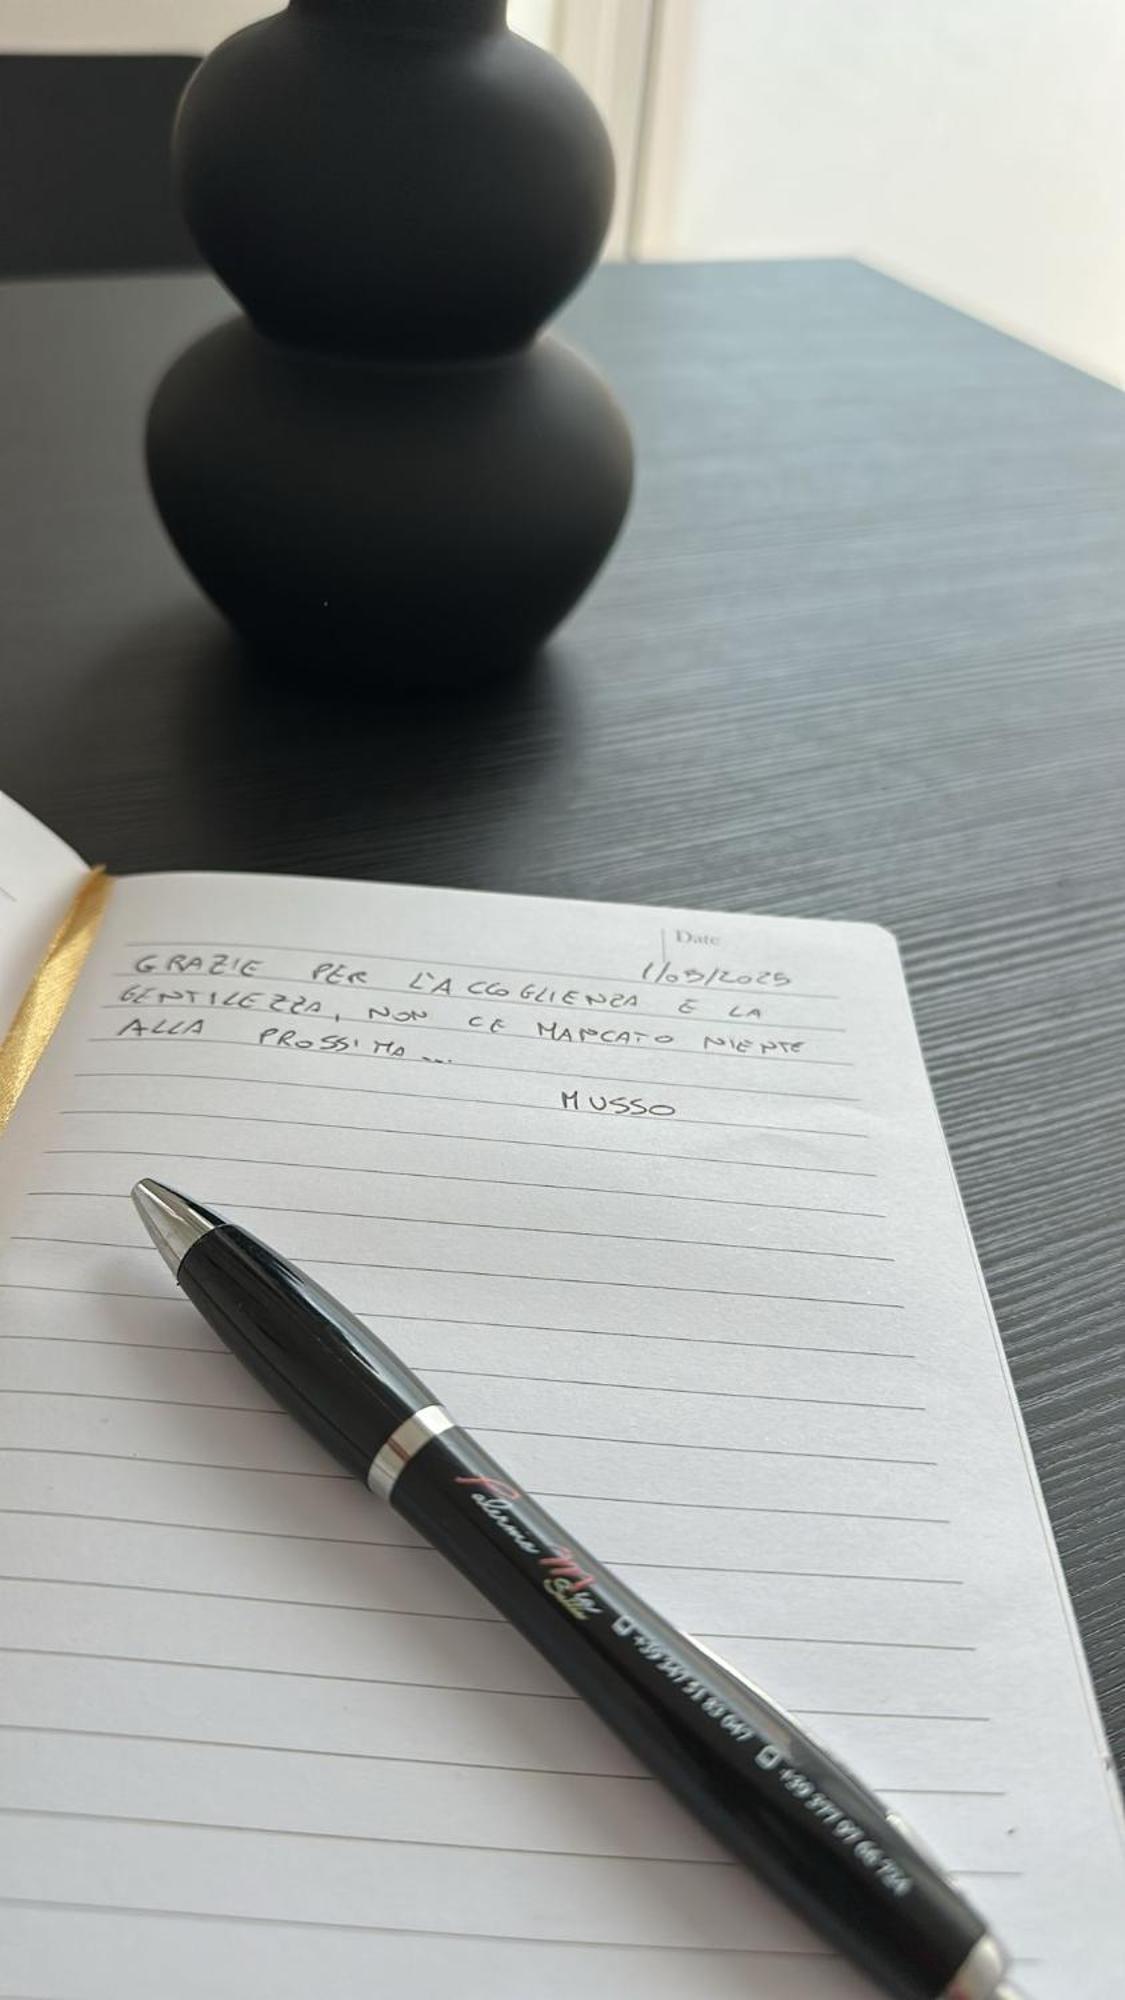 Date
1/05/2025
GRAZIE PER L'ACCOGLIENZA E LA
GENTILEZZA, NON CE MANCATO NIENTE
ALLA PROSSIMA ...
MUSSO
Palermo Mia
+39 377 97 66 724